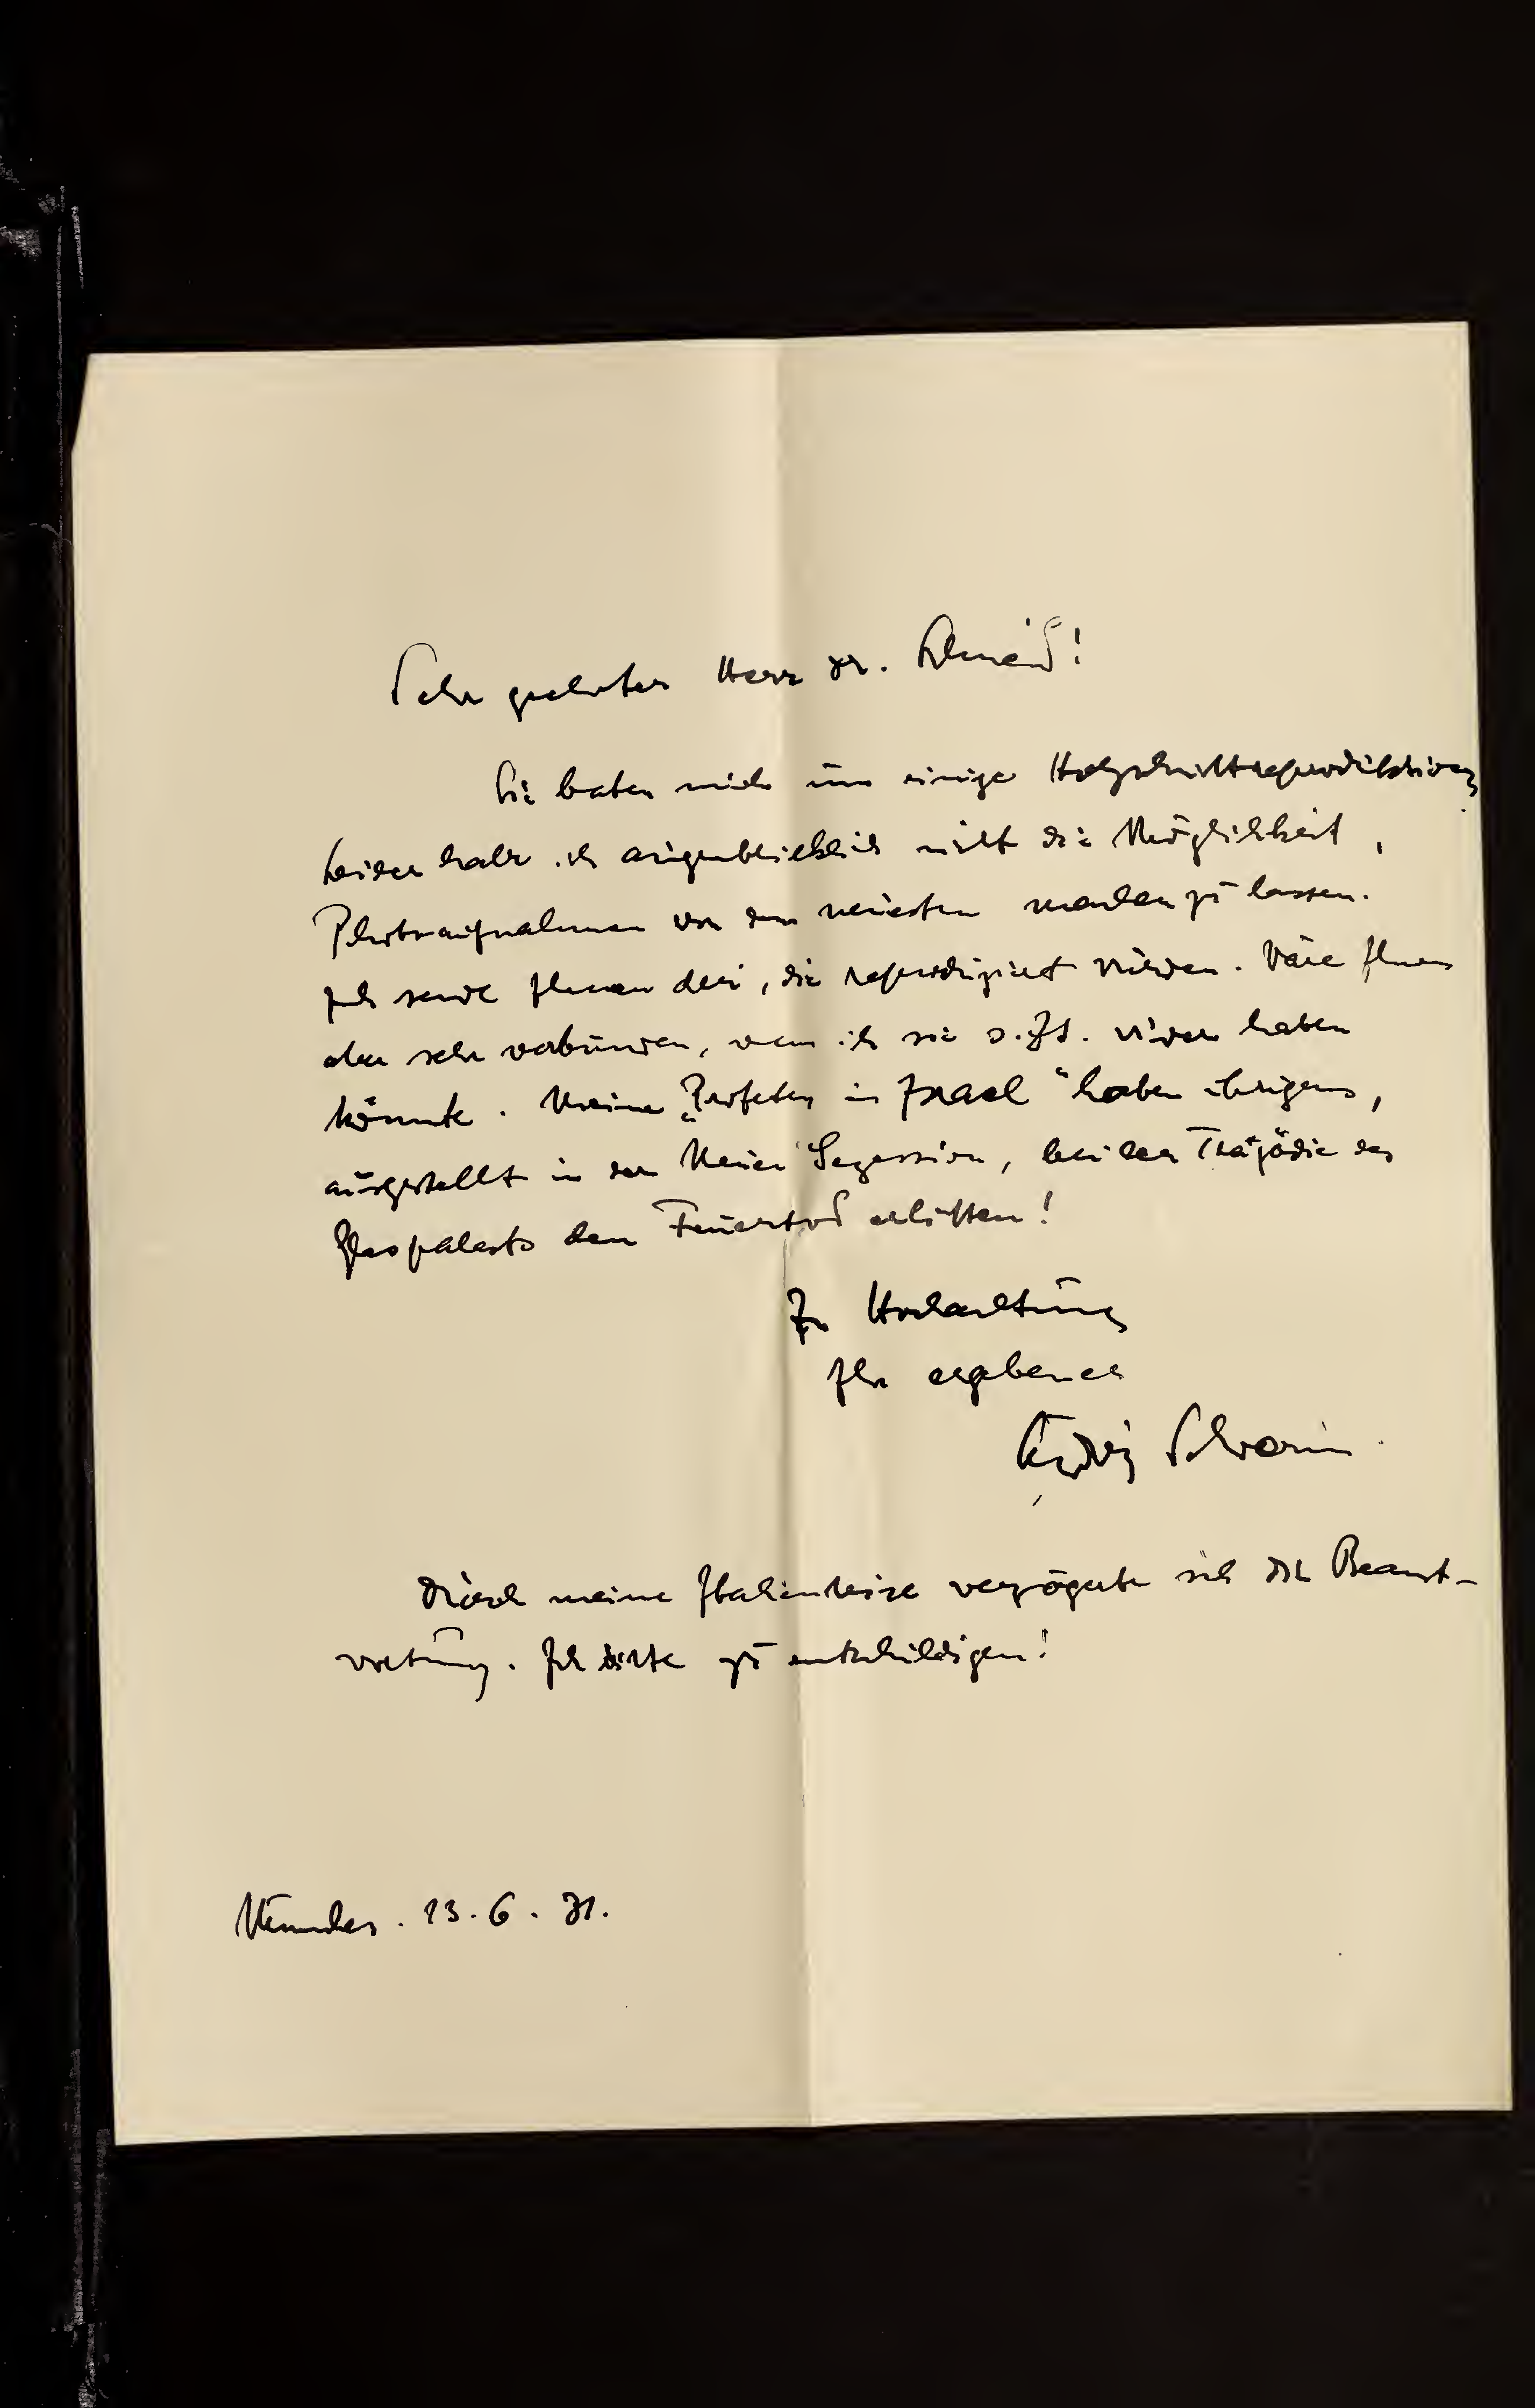 Sehr geehrter Herr Dr. Schmid!
Sie baten mich um einige Holzschnittreproduktionen
Leider habe ich augenblicklich nicht die Möglichkeit,
Photoaufnahmen von den neuesten machen zu lassen.
Ich sende Ihnen drei, die reproduziert wurden. Wäre Ihnen
aber sehr verbunden, wenn ich sie s. Zt. wieder haben
könnte. Meine „Profeten in Israel“ haben übrigens,
ausgestellt in der Neuen Sezession, bei der Tragödie des
Glaspalasts den Feuertod erlitten!
In Hochachtung
Ihr ergebener
Schwerin.
Durch meine Italienreise verzögerte sich die Beant-
wortung. Ich bitte zu entschuldigen!
München. 13. 6. 31.